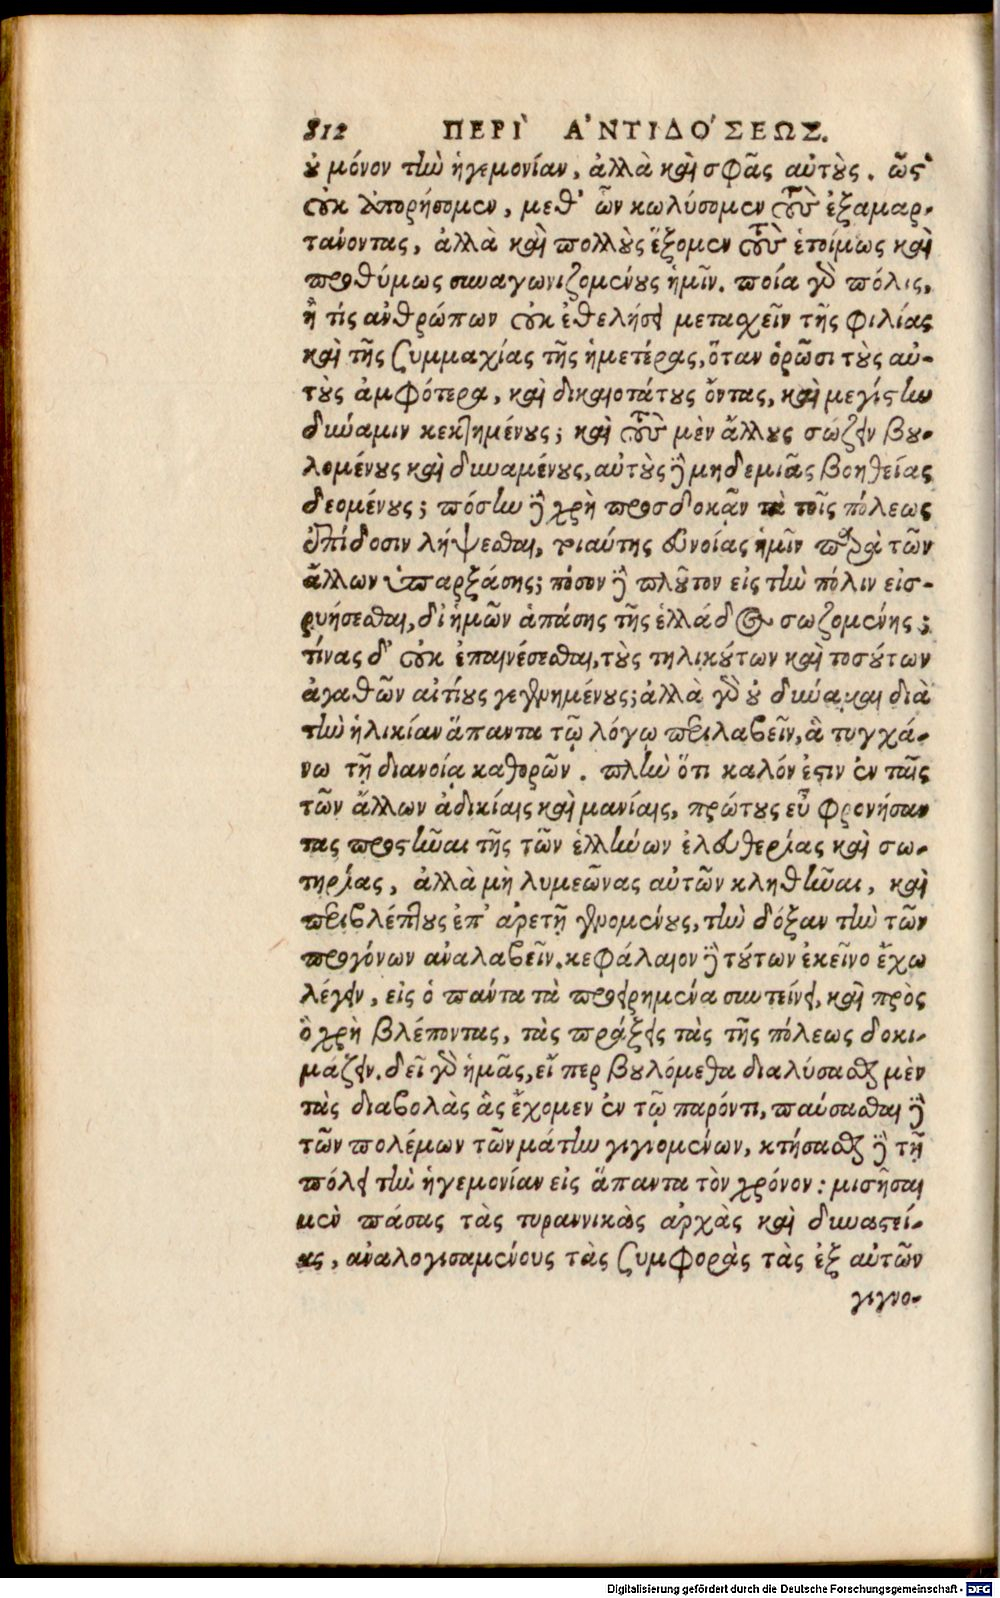 812 ΠΕΡῚ ἈΝΤΙΔΌΣΕΩΣ.
οὐ μόνον τὴν ἡγεμονίαν, ἀλλὰ καὶ σφᾶς αὐτούς. ὥστ'
οὐκ ἀπορήσομεν, μεθ' ὧν κωλύσομεν τοὺς ἐξαμαρ-
τάνοντας, ἀλλὰ καὶ πολλοὺς ἕξομεν τοὺς ἑτοίμως καὶ
προθύμως συναγωνιζομένους ἡμῖν. ποία γὰρ πόλις,
ἢ τίς ἀνθρώπων οὐκ ἐθελήσει μετασχεῖν τῆς φιλίας
καὶ τῆς ξυμμαχίας τῆς ἡμετέρας, ὅταν ὁρῶσι τοὺς αὐ-
τοὺς ἀμφότερα, καὶ δικαιοτάτους ὄντας, καὶ μεγίστην
δύναμιν κεκτημένους; καὶ τοὺς μὲν ἄλλους σώζειν βου-
λομένους καὶ δυναμένους, αὐτοὺς δὲ μηδεμιᾶς βοηθείας
δεομένους; πόστην δὲ χρὴ προσδοκᾶν τὰ τοῖς πόλεως
ἐπίδοσιν λήψεσθαι, τοιαύτης εὐνοίας ἡμῖν παρὰ τῶν
ἄλλων ὑπαρξάσης; πόσον δὲ πλοῦτον εἰς τὴν πόλιν εἰσ-
ρυήσεσθαι, δι' ἡμῶν ἁπάσης τῆς ἑλλάδος σωζομένης;
τίνας δ' οὐκ ἐπαινέσεσθαι, τοὺς τηλικούτων καὶ τοσούτων
ἀγαθῶν αἰτίους γεγενημένους; ἀλλὰ γὰρ οὐ δύναμαι διὰ
τὴν ἡλικίαν ἅπαντα τῷ λόγῳ περιλαβεῖν, ἃ τυγχά-
νω τῇ διανοίᾳ καθορῶν. πλὴν ὅτι καλόν ἐστιν ἐν ταῖς
τῶν ἄλλων ἀδικίαις καὶ μανίαις, πρώτους εὖ φρονήσαν
τας προστῆναι τῆς τῶν ἑλλήνων ἐλευθερίας καὶ σω-
τηρίας, ἀλλὰ μὴ λυμεῶνας αὐτῶν κληθῆναι, καὶ
περιβλέπτους ἐπ' ἀρετῇ γενομένους, τὴν δόξαν τὴν τῶν
προγόνων ἀναλαβεῖν. κεφάλαιον δὲ τούτων ἐκεῖνο ἔχω
λέγειν, εἰς ὃ πάντα τὰ προειρημένα συντείνει, καὶ πρὸς
ὃ χρὴ βλέποντας, τὰς πράξεις τὰς τῆς πόλεως δοκι-
μάζειν. δεῖ γὰρ ἡμᾶς, εἴπερ βουλόμεθα διαλύσασθαι μὲν
τὰς διαβολὰς ἃς ἔχομεν ἐν τῷ παρόντι, παύσασθαι δὲ
τῶν πολέμων τῶν μάτην γιγνομένων, κτήσασθαι δὲ τῇ
πόλει τὴν ἡγεμονίαν εἰς ἅπαντα τὸν χρόνον: μισῆσαι
μὲν πάσας τὰς τυραννικὰς ἀρχὰς καὶ δυναστεί-
ας, ἀναλογισαμένους τὰς ξυμφορὰς τὰς ἐξ αὐτῶν
γιγνο-
Digitalisierung gefördert durch die Deutsche Forschungsgemeinschaft - DFG